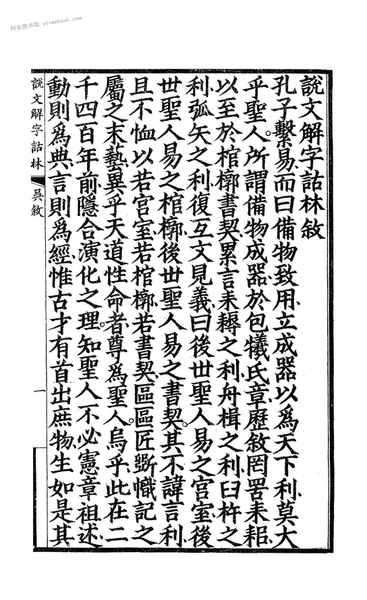 說文解字詁林敘
孔子繫易而曰備物致用立成器以爲天下利莫大
乎聖人所謂備物成器於包犧氏章歷敘罔罟耒耜
以至於棺槨書契累言耒耨之利舟楫之利臼杵之
利弧矢之利復互文見義曰後世聖人易之宮室後
世聖人易之棺槨後世聖人易之書契其不諱言利
且不恤以若宮室若棺槨若書契區區匠斲幟記之
屬之末藝異乎天道性命者尊爲聖人烏乎此在二
千四百年前隱合演化之理知聖人不必憲章祖述
動則爲典言則爲經惟古才有首出庶物生如是其
說文解字詁林
吳敘
一